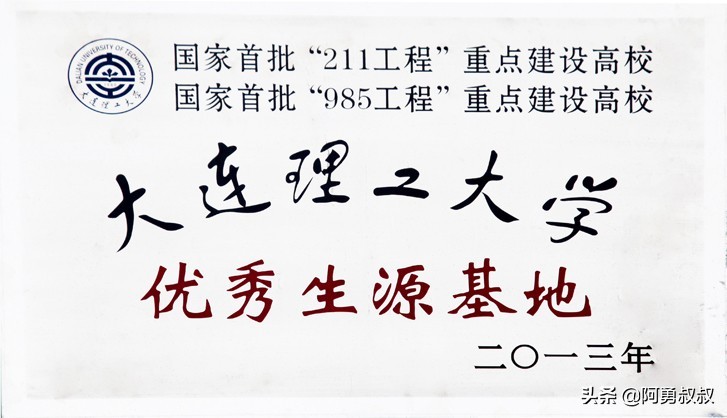 国家首批“211工程”重点建设高校
国家首批“985工程”重点建设高校
DALIAN UNIVERSITY OF TECHNOLOGY
大连理工大学
大连理工大学
优秀生源基地
二〇一三年
头条 @阿勇叔叔